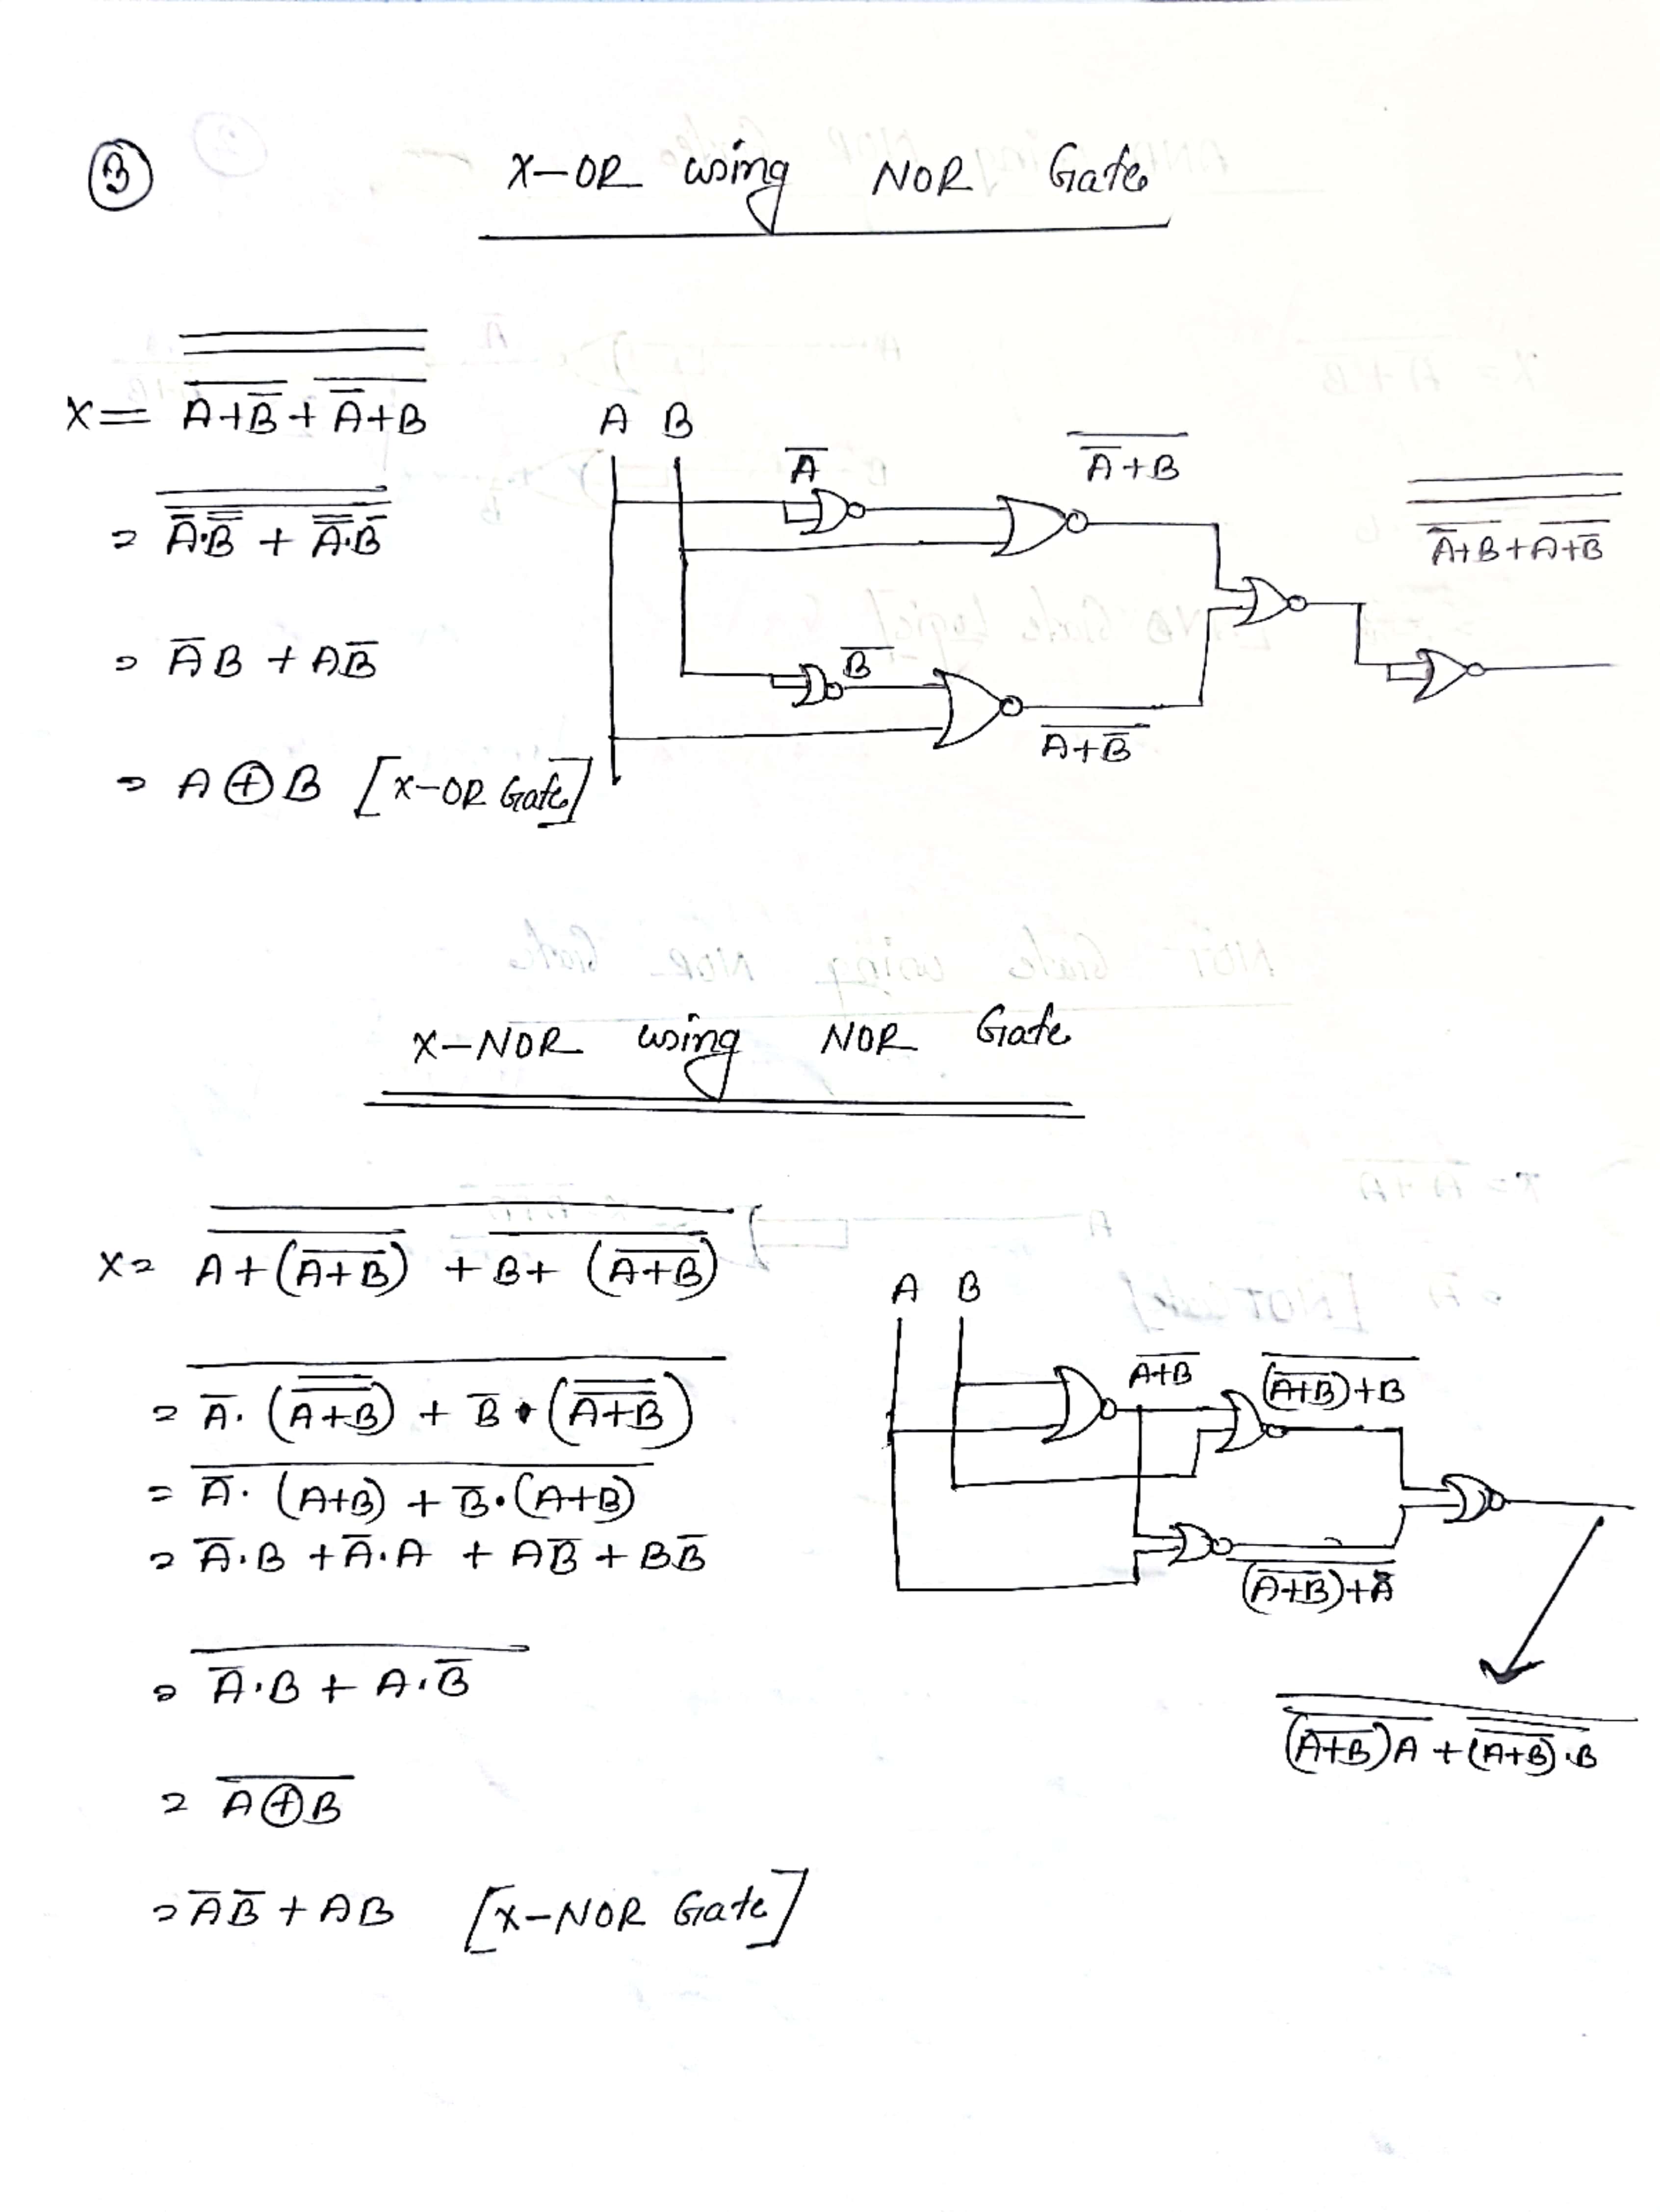 3
X-OR using NOR Gate
X = \overline{\overline{\overline{A+\overline{B}} + \overline{\overline{A}+B}}}
= \overline{\overline{\overline{A}.\overline{\overline{B}} + \overline{\overline{A}}.\overline{B}}}
= \overline{A}B + A\overline{B}
= A⊕B [X-OR Gate]
A B
\overline{A}
\overline{\overline{A}+B}
\overline{\overline{\overline{\overline{A}+B}+\overline{A+\overline{B}}}}
\overline{B}
\overline{A+\overline{B}}
X-NOR using NOR Gate
X = \overline{\overline{A+(\overline{A+B})} + \overline{B+(\overline{A+B})}}
= \overline{\overline{A}.(\overline{\overline{A+B}}) + \overline{B}.(\overline{\overline{A+B}})}
= \overline{\overline{A}.(A+B) + \overline{B}.(A+B)}
= \overline{A}.B + \overline{A}.A + A\overline{B} + B\overline{B}
= \overline{\overline{A}.B + A.\overline{B}}
= \overline{A⊕B}
= \overline{A}\overline{B} + AB [X-NOR Gate]
A B
\overline{A+B}
\overline{(\overline{A+B})+B}
\overline{(\overline{A+B})+A}
\overline{\overline{(\overline{A+B})A} + \overline{\overline{(\overline{A+B}).B}}}